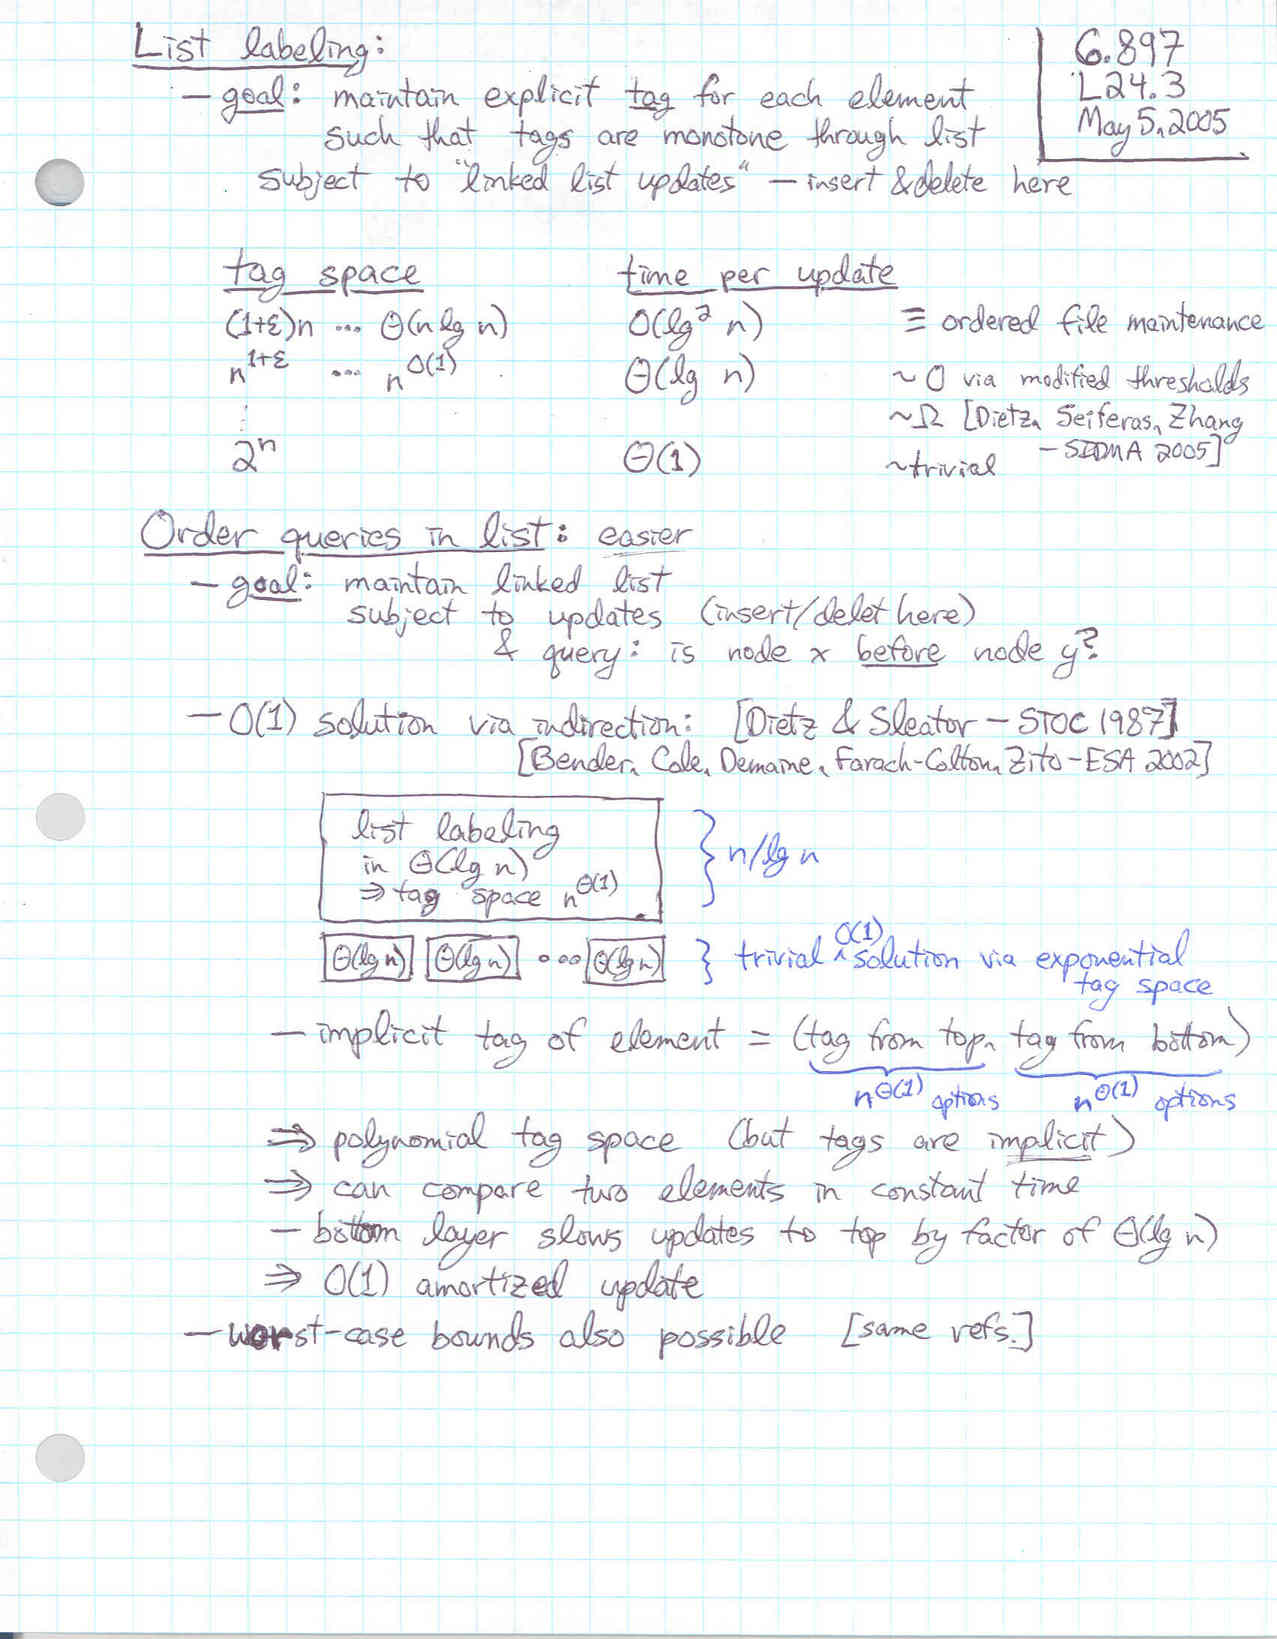 List labeling:
6.897
L24.3
May 5, 2005
– goal: maintain explicit tag for each element
such that tags are monotone through list
subject to "linked list updates" – insert & delete here
tag space time per update
(1+ε)n ... Θ(n lg n) O(lg² n) ≡ ordered file maintenance
n^{1+ε} ... n^{O(1)} Θ(lg n) ~ O via modified thresholds
⋮ ~ Ω [Dietz, Seiferas, Zhang
– SIDMA 2005]
2^n Θ(1) ~ trivial
Order queries in list: easier
– goal: maintain linked list
subject to updates (insert/delet here)
& query: is node x before node y?
– O(1) solution via indirection: [Dietz & Sleator – STOC 1987]
[Bender, Cole, Demaine, Farach-Colton, Zito – ESA 2002]
list labeling
in Θ(lg n)
⇒ tag space n^{Θ(1)}
} n/lg n
Θ(lg n) Θ(lg n) ... Θ(lg n) } trivial ^ O(1) solution via exponential
tag space
– implicit tag of element = (tag from top, tag from bottom)
n^{Θ(1)} options n^{Θ(1)} options
⇒ polynomial tag space (but tags are implicit)
⇒ can compare two elements in constant time
– bottom layer slows updates to top by factor of Θ(lg n)
⇒ O(1) amortized update
– worst-case bounds also possible [same refs.]